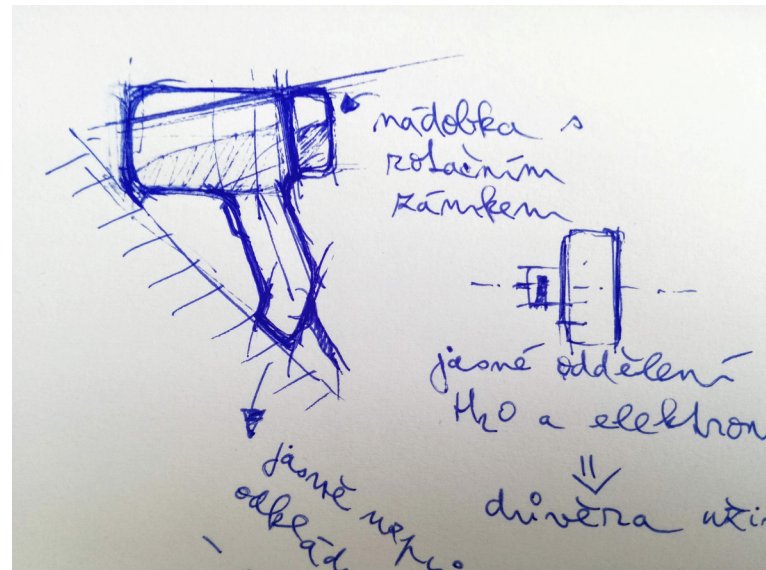 nádobka s
rotačním
zámkem
jasné oddělení
H₂O a elektron
⇓
důvěra uži
jasně
odklád